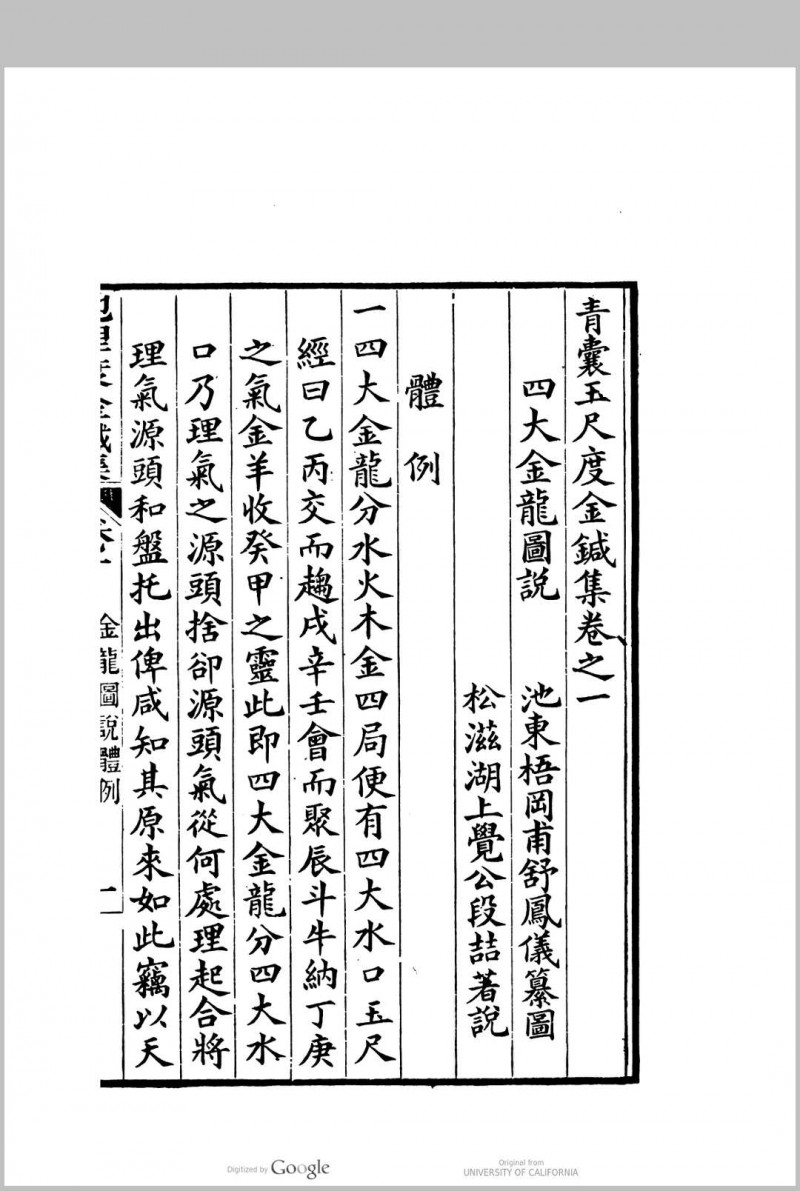 青囊玉尺度金鍼集卷之一
四大金龍圖說
池東梧岡甫舒鳳儀纂圖
松滋湖上覺公段喆著說
體例
一四大金龍分水火木金四局便有四大水口玉尺
經曰乙丙交而趨戌辛壬會而聚辰斗牛納丁庚
之氣金羊收癸甲之靈此即四大金龍分四大水
口乃理氣之源頭捨卻源頭氣從何處理起合將
理氣源頭和盤托出俾咸知其原來如此竊以天
金龍圖說體例
Digitized by Google
Original from
UNIVERSITY OF CALIFORNIA